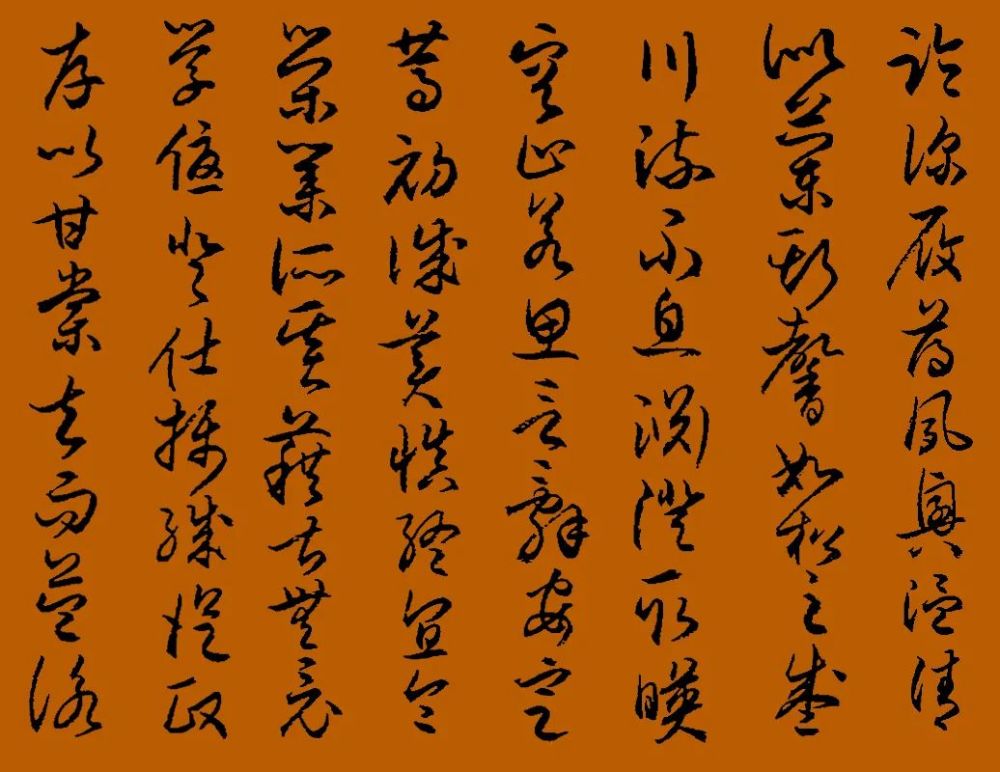 臨深履薄夙興温凊
似蘭斯馨如松之盛
川流不息淵澄取暎
容止若思言辭安定
篤初誠美慎終宜令
榮業所基藉甚無竟
學優登仕攝職從政
存以甘棠去而益詠